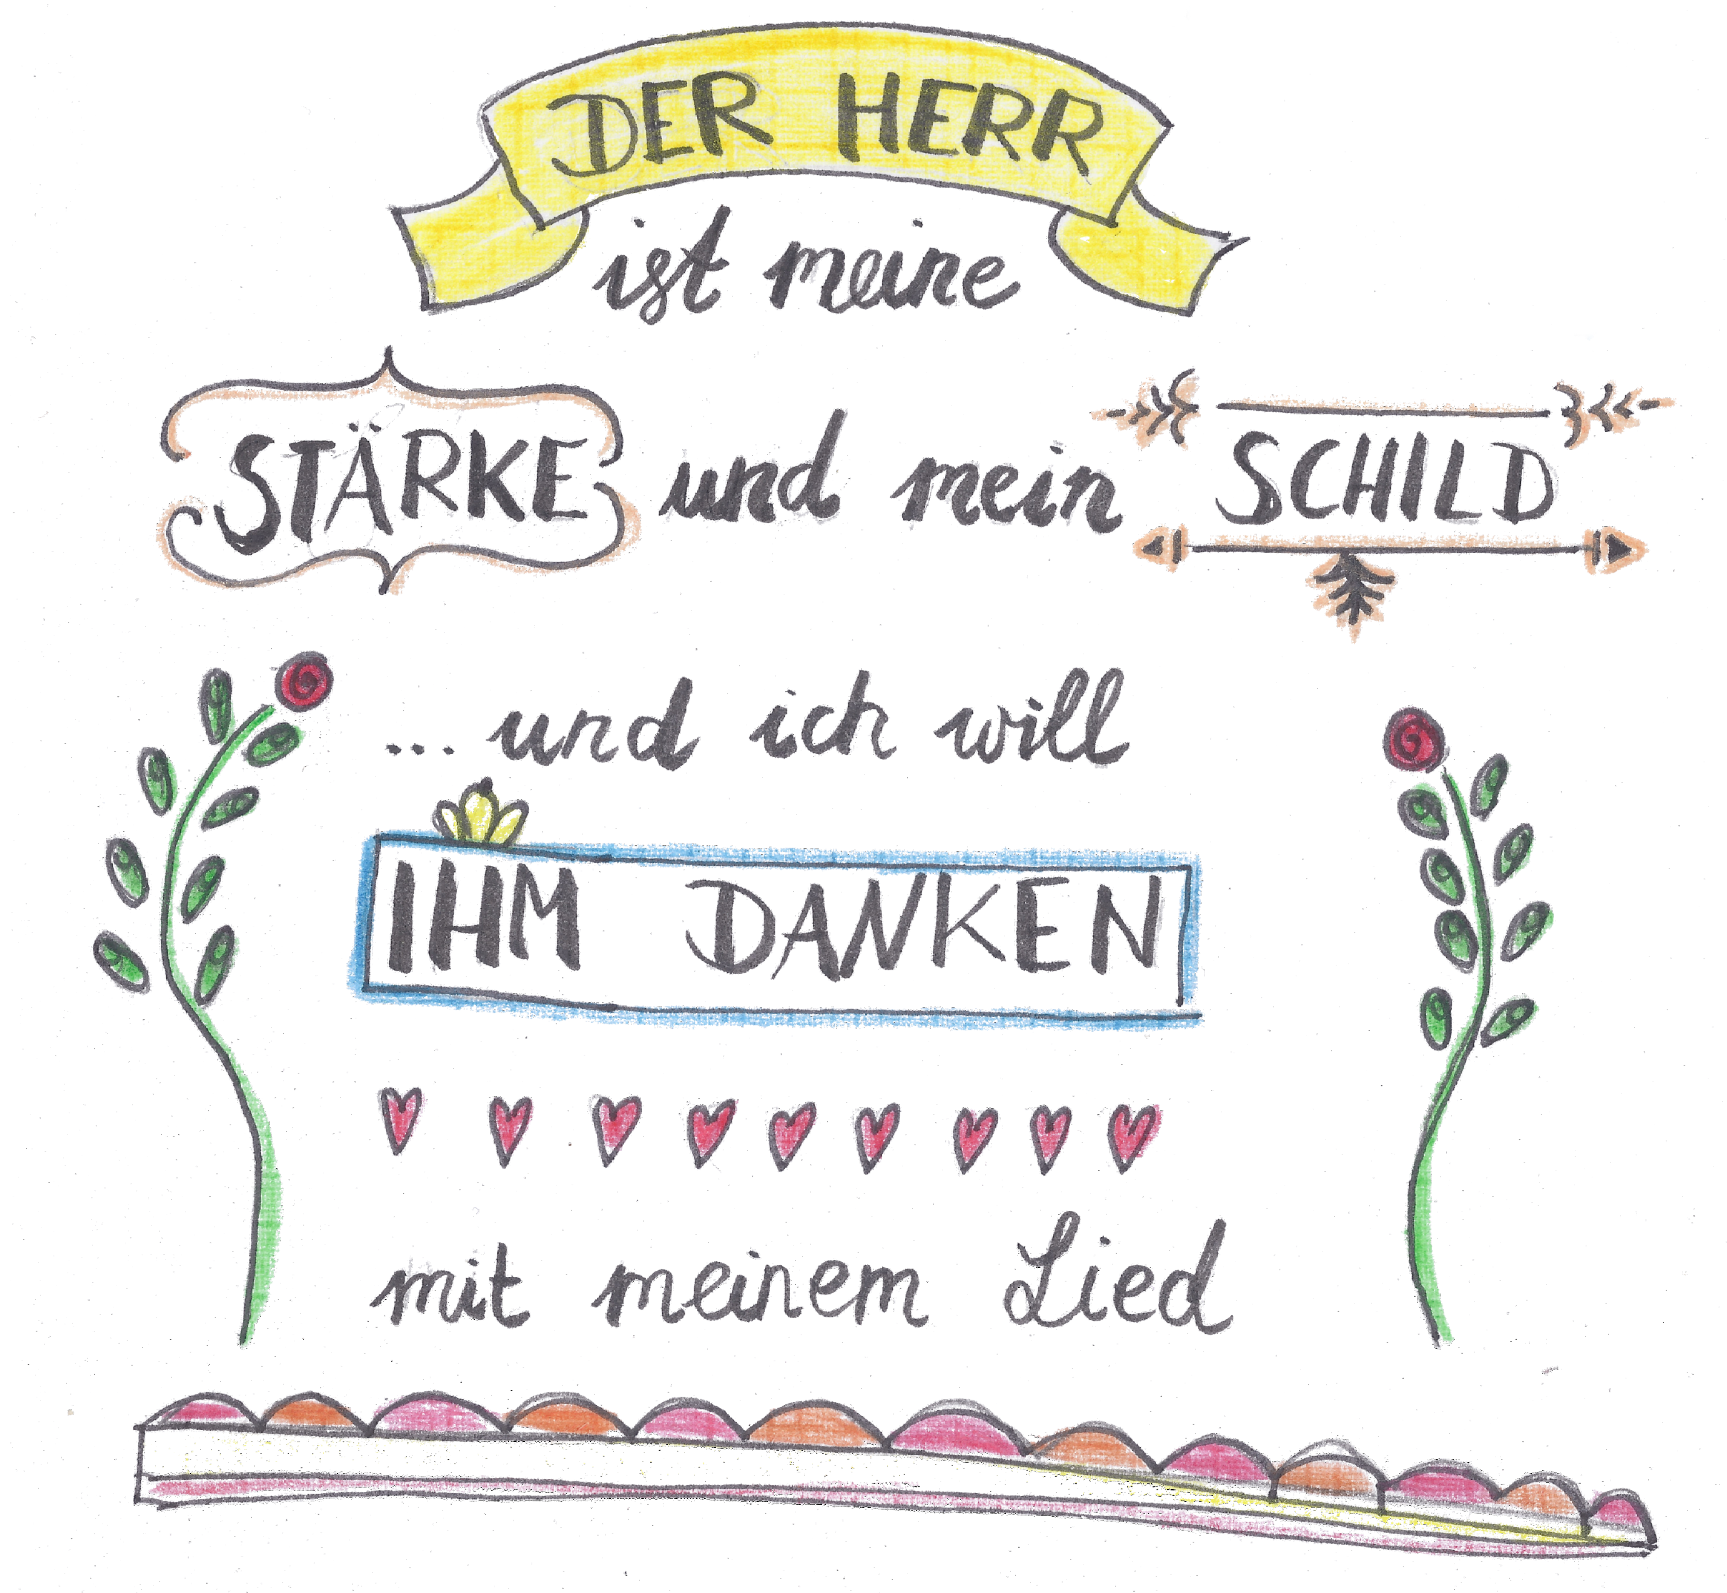 DER HERR
ist meine
STÄRKE und mein SCHILD
... und ich will
IHM DANKEN
mit meinem Lied